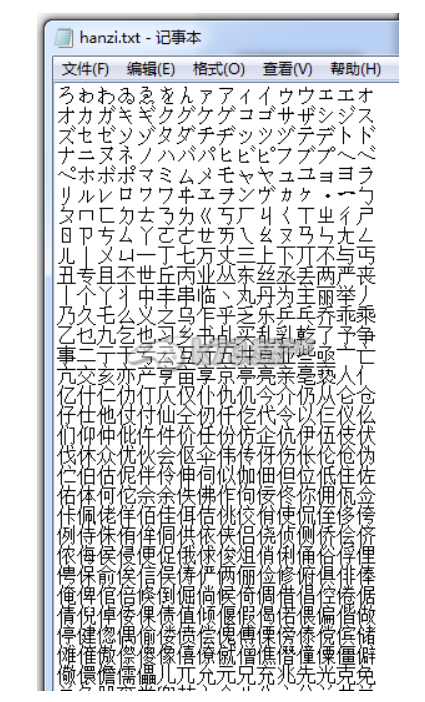 hanzi.txt - 记事本
文件(F) 编辑(E) 格式(O) 查看(V) 帮助(H)
ろゎわゐゑをんァアィイゥウェエォ
オカガキギクグケゲコゴサザシジス
ズセゼソゾタダチヂッツヅテデトド
ナニヌネノハバパヒビピフブプヘベ
ペホボポマミムメモャヤュユョヨラ
リルレロヮワヰヱヲンヴヵヶ・ーㄅ
ㄆㄇㄈㄉㄊㄋㄌㄍㄎㄏㄐㄑㄒㄓㄔㄕ
ㄖㄗㄘㄙㄚㄛㄜㄝㄞㄟㄠㄡㄢㄣㄤㄥ
ㄦㄧㄨㄩ一丁七万丈三上下丌不与丐
丑专且丕世丘丙业丛东丝丞丢两严丧
丨个丫丬中丰串临丶丸丹为主丽举丿
乃久乇么义之乌乍乎乏乐乒乓乔乖乘
乙乜九乞也习乡书乩买乱乳乾了予争
事二亍于亏云互亓五井亘亚些亟亠亡
亢交亥亦产亨亩享京亭亮亲亳亵人亻
亿什仁仂仃仄仅仆仇仉今介仍从仑仓
仔仕他仗付仙仝仞仟仡代令以仨仪仫
们仰仲仳仵件价任份仿企伉伊伍伎伏
伐休众优伙会伛伞伟传伢伤伥伦伧伪
伫伯估伲伴伶伸伺似伽佃但位低住佐
佑体何佗佘余佚佛作佝佞佟你佣佤佥
佧佩佬佯佰佳佴佶佻佼佾使侃侄侈侉
例侍侏侑侔侗供依侠侣侥侦侧侨侩侪
侬侮侯侵便促俄俅俊俎俏俐俑俗俘俚
俜保俞俟信俣俦俨俩俪俭修俯俱俳俸
俺俾倌倍倏倒倔倘候倚倜借倡倥倦倨
倩倪倬倭倮债值倾偃假偈偌偎偏偕做
停健偬偶偷偻偾偿傀傅傈傍傣傥傧储
傩催傲傺傻像僖僚僦僧僬僭僮僳僵僻
儆儇儋儒儡儿兀允元兄充兆先光克免